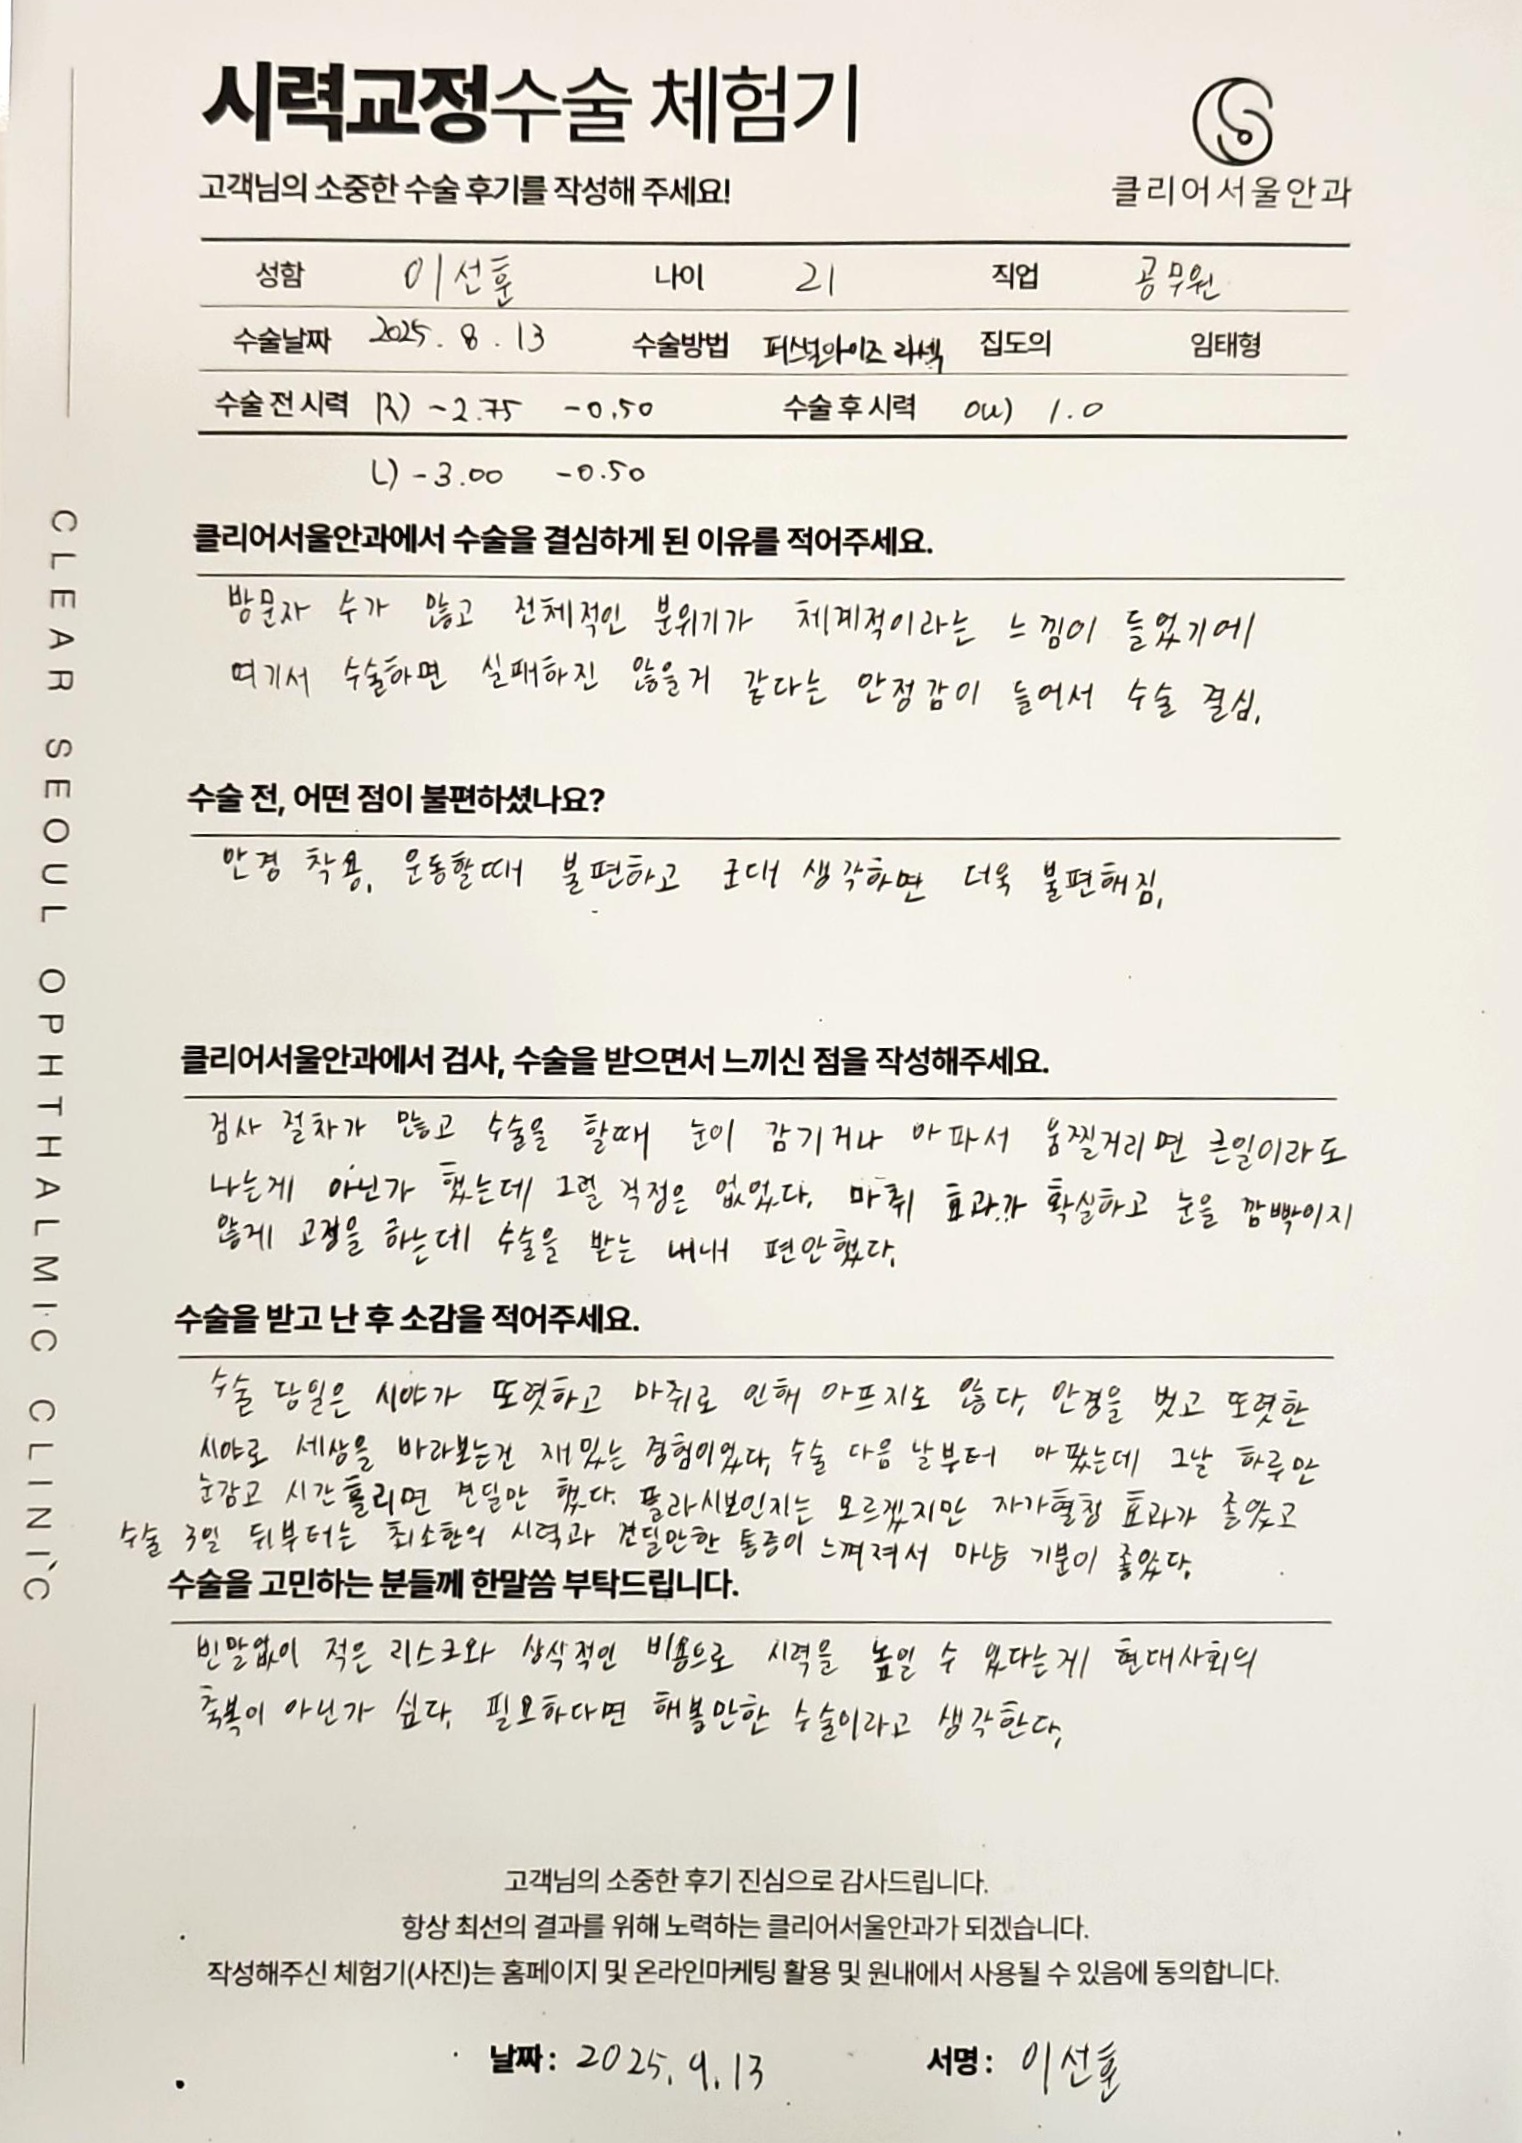 시력교정수술 체험기
고객님의 소중한 수술 후기를 작성해 주세요!
클리어서울안과
성함 이선훈 나이 21 직업 공무원
수술날짜 2025. 8. 13 수술방법 퍼스널아이즈 라섹 집도의 임태형
수술 전 시력 R) -2.75 -0.50 수술 후 시력 OU) 1.0
L) -3.00 -0.50
클리어서울안과에서 수술을 결심하게 된 이유를 적어주세요.
방문자 수가 많고 전체적인 분위기가 체계적이라는 느낌이 들었기에
여기서 수술하면 실패하진 않을거 같다는 안정감이 들어서 수술 결심.
수술 전, 어떤 점이 불편하셨나요?
안경 착용, 운동할때 불편하고 군대 생각하면 더욱 불편해짐.
클리어서울안과에서 검사, 수술을 받으면서 느끼신 점을 작성해주세요.
검사 절차가 많고 수술을 할때 눈이 감기거나 아파서 움찔거리면 큰일이라도
나는게 아닌가 했는데 그럴 걱정은 없었다. 마취 효과가 확실하고 눈을 깜빡이지
않게 고정을 하는데 수술을 받는 내내 편안했다.
수술을 받고 난 후 소감을 적어주세요.
수술 당일은 시야가 또렷하고 마취로 인해 아프지도 않다. 안경을 벗고 또렷한
시야로 세상을 바라보는건 재밌는 경험이었다. 수술 다음 날부터 아팠는데 그날 하루만
눈감고 시간 흘리면 견딜만 했다. 플라시보인지는 모르겠지만 자가혈청 효과가 좋았고
수술 3일 뒤부터는 최소한의 시력과 견딜만한 통증이 느껴져서 마냥 기분이 좋았다.
수술을 고민하는 분들께 한말씀 부탁드립니다.
빈말없이 적은 리스크와 상식적인 비용으로 시력을 높일 수 있다는게 현대사회의
축복이 아닌가 싶다. 필요하다면 해봄만한 수술이라고 생각한다.
고객님의 소중한 후기 진심으로 감사드립니다.
항상 최선의 결과를 위해 노력하는 클리어서울안과가 되겠습니다.
작성해주신 체험기(사진)는 홈페이지 및 온라인마케팅 활용 및 원내에서 사용될 수 있음에 동의합니다.
날짜 : 2025. 9. 13 서명 : 이선훈
CLEAR SEOUL OPHTHALMIC CLINIC